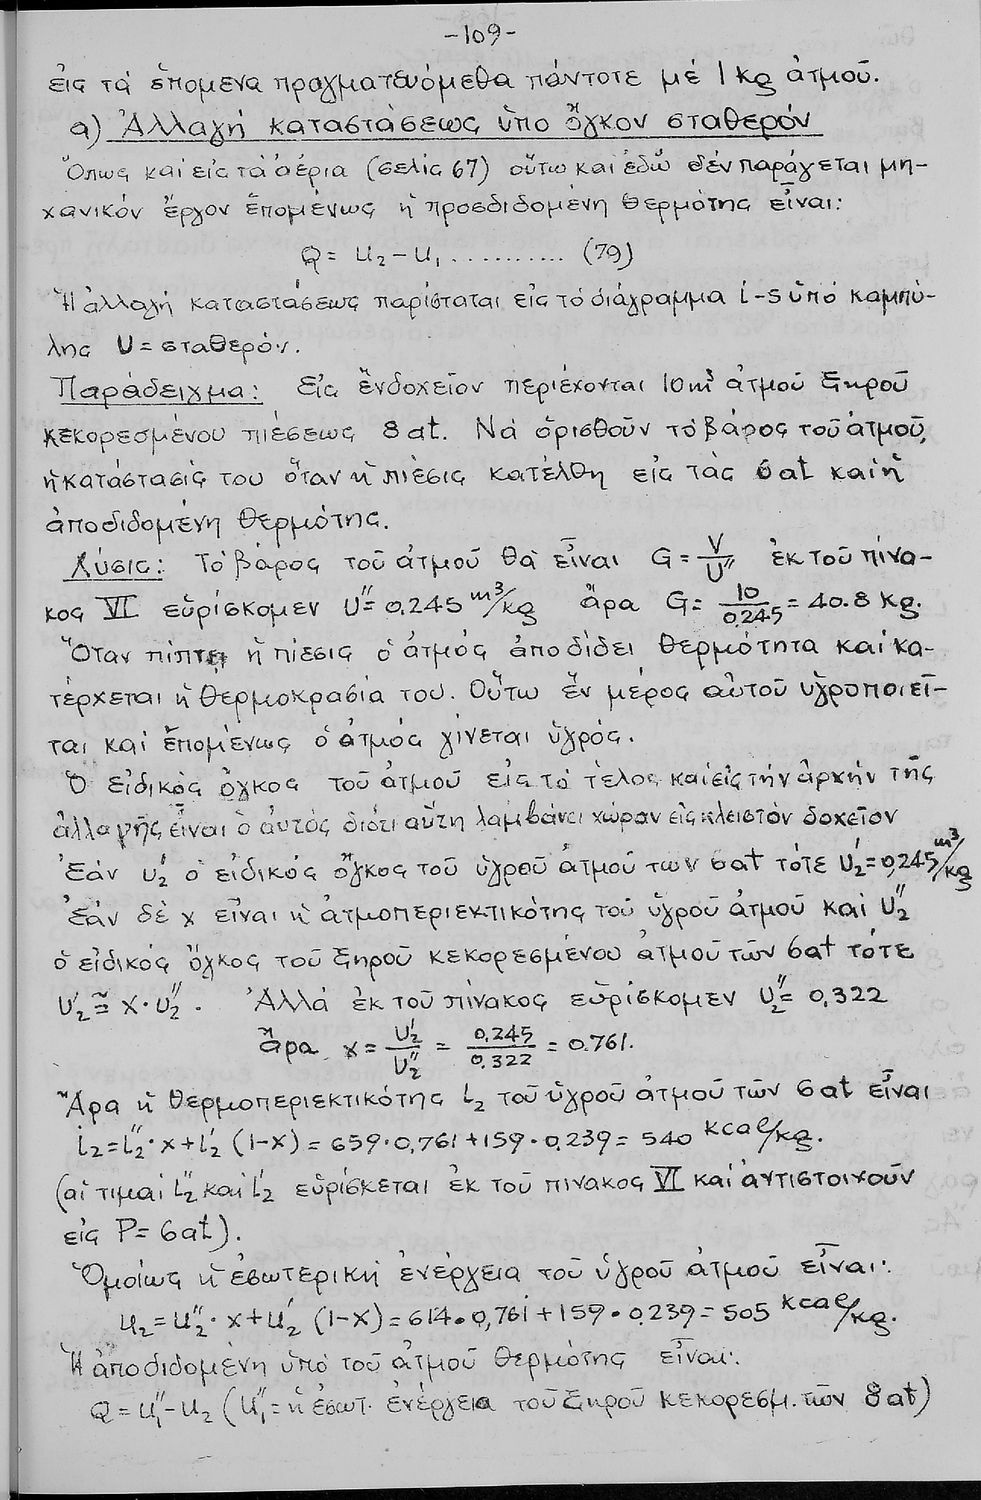 -109-
εἰς τά ἑπόμενα πραγματευόμεθα πάντοτε μέ 1 kg ἀτμοῦ.
α) Ἀλλαγή καταστάσεως ὑπο ὄγκον σταθερόν
Ὅπως καί εἰς τά ἀέρια (σελίς 67) οὕτω καί ἐδῶ δέν παράγεται μη-
χανικόν ἔργον ἑπομένως ἡ προσδιδομένη θερμότης εἶναι:
Q = U₂ - U₁ ........... (79)
Ἡ ἀλλαγή καταστάσεως παρίσταται εἰς τό διάγραμμα i-s ὑπό καμπύ-
λης U = σταθερόν.
Παράδειγμα: Εἰς ἕνδοχεῖον περιέχονται 10 m³ ἀτμοῦ ξηροῦ
κεκορεσμένου πιέσεως 8 at. Νά ὁρισθοῦν τό βάρος τοῦ ἀτμοῦ,
ἡ κατάστασίς του ὅταν ἡ πίεσις κατέλθη εἰς τάς 6 at καί ἡ
ἀποδιδομένη θερμότης.
Λύσις: Τό βάρος τοῦ ἀτμοῦ θά εἶναι G = V/U'' ἐκ τοῦ πίνα-
κος VI εὑρίσκομεν U'' = 0.245 m³/kg ἄρα G = 10/0.245 = 40.8 kg.
Ὅταν πίπτει ἡ πίεσις ὁ ἀτμός ἀποδίδει θερμότητα καί κα-
τέρχεται ἡ θερμοκρασία του. Οὕτω ἕν μέρος αὐτοῦ ὑγροποιεῖ-
ται καί ἑπομένως ὁ ἀτμός γίνεται ὑγρός.
Ὁ εἰδικός ὄγκος τοῦ ἀτμοῦ εἰς τό τέλος καί εἰς τήν ἀρχήν τῆς
ἀλλαγῆς εἶναι ὁ αὐτός διότι αὕτη λαμβάνει χώραν εἰς κλειστόν δοχεῖον
Ἐάν U₂' ὁ εἰδικός ὄγκος τοῦ ὑγροῦ ἀτμοῦ των 6 at τότε U₂' = 0,245 m³/kg
Ἐάν δέ x εἶναι ἡ ἀτμοπεριεκτικότης τοῦ ὑγροῦ ἀτμοῦ καί U₂''
ὁ εἰδικός ὄγκος τοῦ ξηροῦ κεκορεσμένου ἀτμοῦ τῶν 6 at τότε
U₂' ≅ x · U₂''. Ἀλλά ἐκ τοῦ πίνακος εὑρίσκομεν U₂'' = 0,322
ἄρα x = U₂'/U₂'' = 0.245/0.322 = 0.761.
Ἄρα ἡ θερμοπεριεκτικότης i₂ τοῦ ὑγροῦ ἀτμοῦ τῶν 6 at εἶναι
i₂ = i₂'' · x + i₂' (1-x) = 659 · 0,761 + 159 · 0.239 = 540 kcal/kg.
(αἱ τιμαί i₂'' καί i₂' εὑρίσκεται ἐκ τοῦ πινακος VI καί ἀντιστοιχοῦν
εἰς P = 6 at).
Ὁμοίως ἡ ἐσωτερική ἐνέργεια τοῦ ὑγροῦ ἀτμοῦ εἶναι:
U₂ = U₂'' · x + U₂' (1-x) = 614 · 0,761 + 159 · 0.239 = 505 kcal/kg.
Ἡ ἀποδιδομένη ὑπό τοῦ ἀτμοῦ θερμότης εἶναι:
Q = U₁'' - U₂ (U₁'' = ἡ ἐσωτ. ἐνέργεια τοῦ ξηροῦ κεκορεσμ. τῶν 8 at)